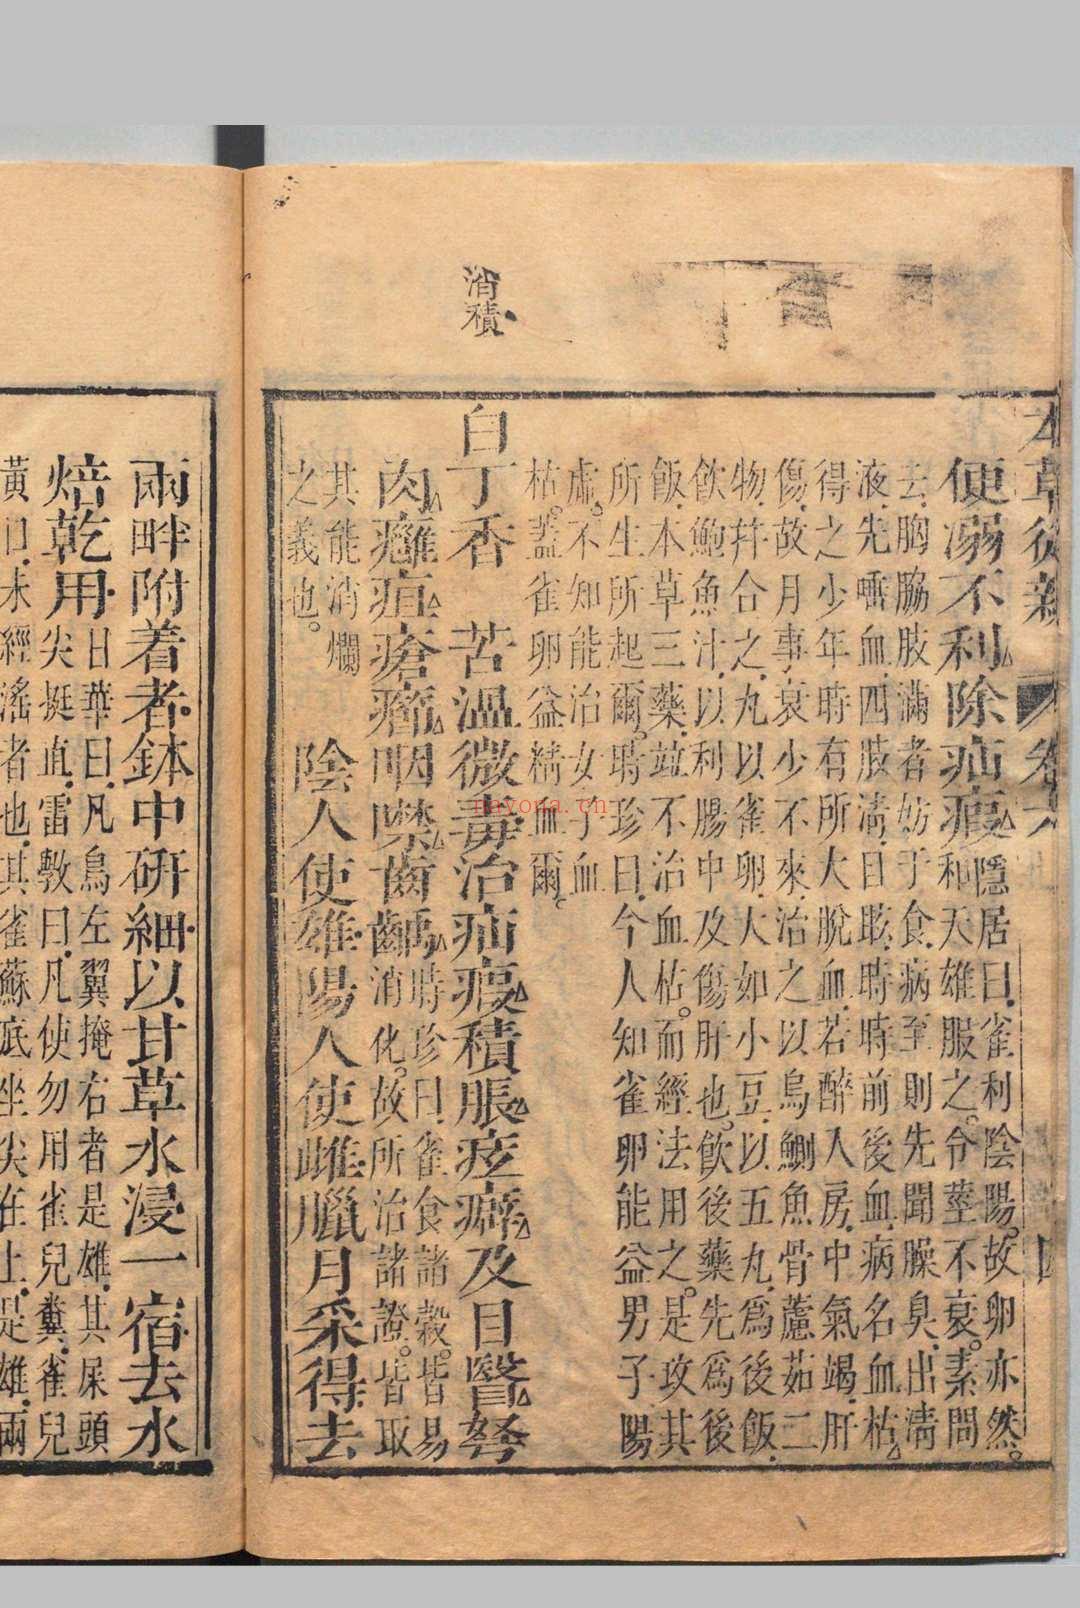 消積
便溺不利除疝瘕
隱居曰雀利陰陽故卵亦然
和天雄服之令莖不衰素問
去胸脇肢滿者妨于食病至則先聞臊臭出淸
液先唾血四肢淸目眩時時前後血病名血枯
得之少年時有所大脫血若醉入房中氣竭肝
傷故月事衰少不來治之以烏鰂魚骨蘆茹二
物幷合之丸以雀卵大如小豆以五丸爲後飯
飲鮑魚汁以利腸中及傷肝也飲後藥先爲後
飯本草三藥竝不治血枯而經法用之是攻其
所生所起爾時珍曰今人知雀卵能益男子陽
虛不知能治女子血
枯蓋雀卵益精血爾
白丁香 苦溫微毒治疝瘕積脹痃癖及目翳努
肉癰疽瘡癤咽噤齒齲
時珍曰雀食諸穀皆易
消化故所治諸證皆取
其能消爛
之義也
陰人使雄陽人使雌臘月采得去
兩畔附着者鉢中硏細以甘草水浸一宿去水
焙乾用
日華曰凡鳥左翼掩右者是雄其屎頭
尖挺直雷斆曰凡使勿用雀兒糞雀兒
黃口未經淫者也其雀蘇底坐尖在上是雄兩